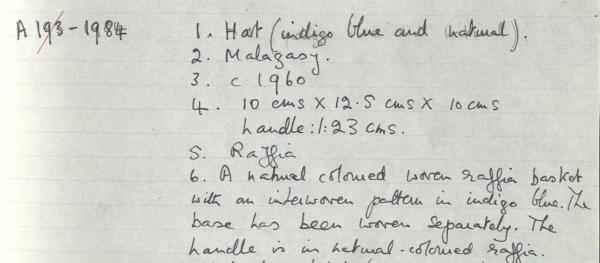 A 193-1984 1. Hat (indigo blue and natural).
2. Malagasy.
3. c 1960
4. 10 cms X 12.5 cms X 10 cms
handle: l: 23 cms.
5. Raffia
6. A natural coloured woven raffia basket
with an interwoven pattern in indigo blue. The
base has been woven separately. The
handle is in natural-coloured raffia.